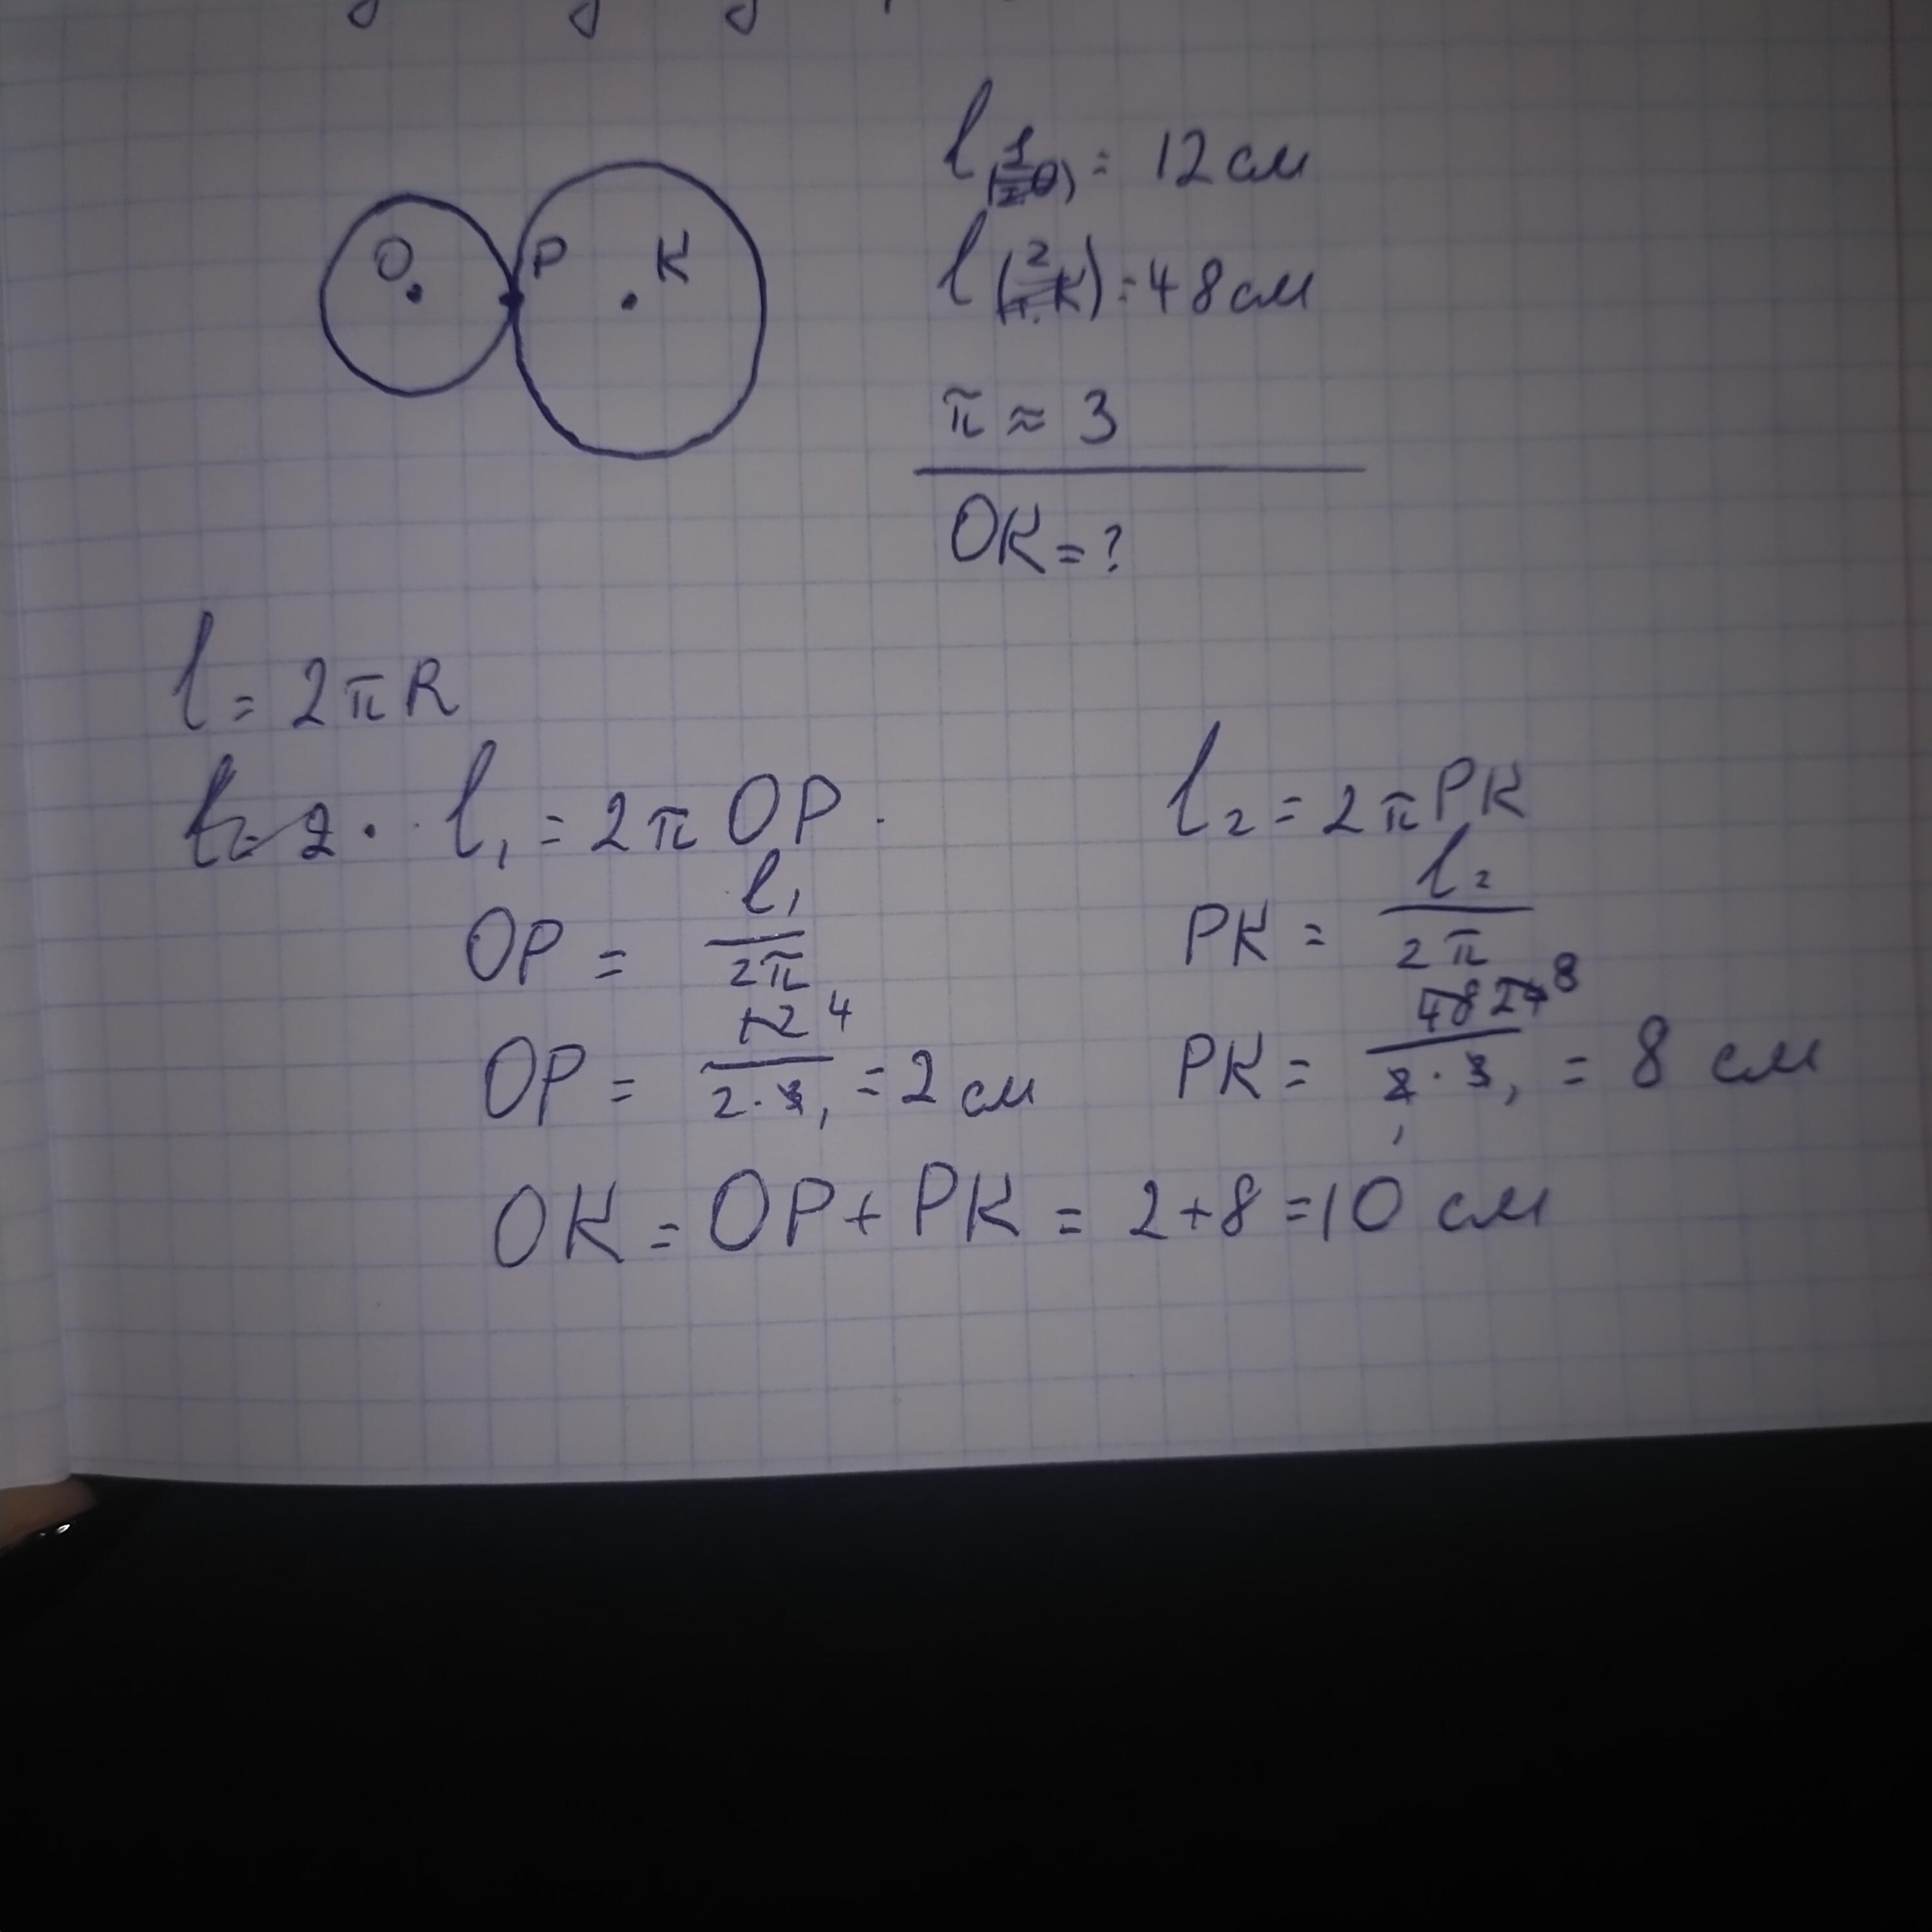 O P K
l₁ = 12 см
l₂ = 48 см
π ≈ 3
OK = ?
l = 2πR
l₁ = 2π OP
OP = l₁/2π
OP = 12 4/2·3, = 2 см
l₂ = 2πPK
PK = l₂/2π
PK = 48 24 8/2·3, = 8 см
OK = OP + PK = 2+8 = 10 см